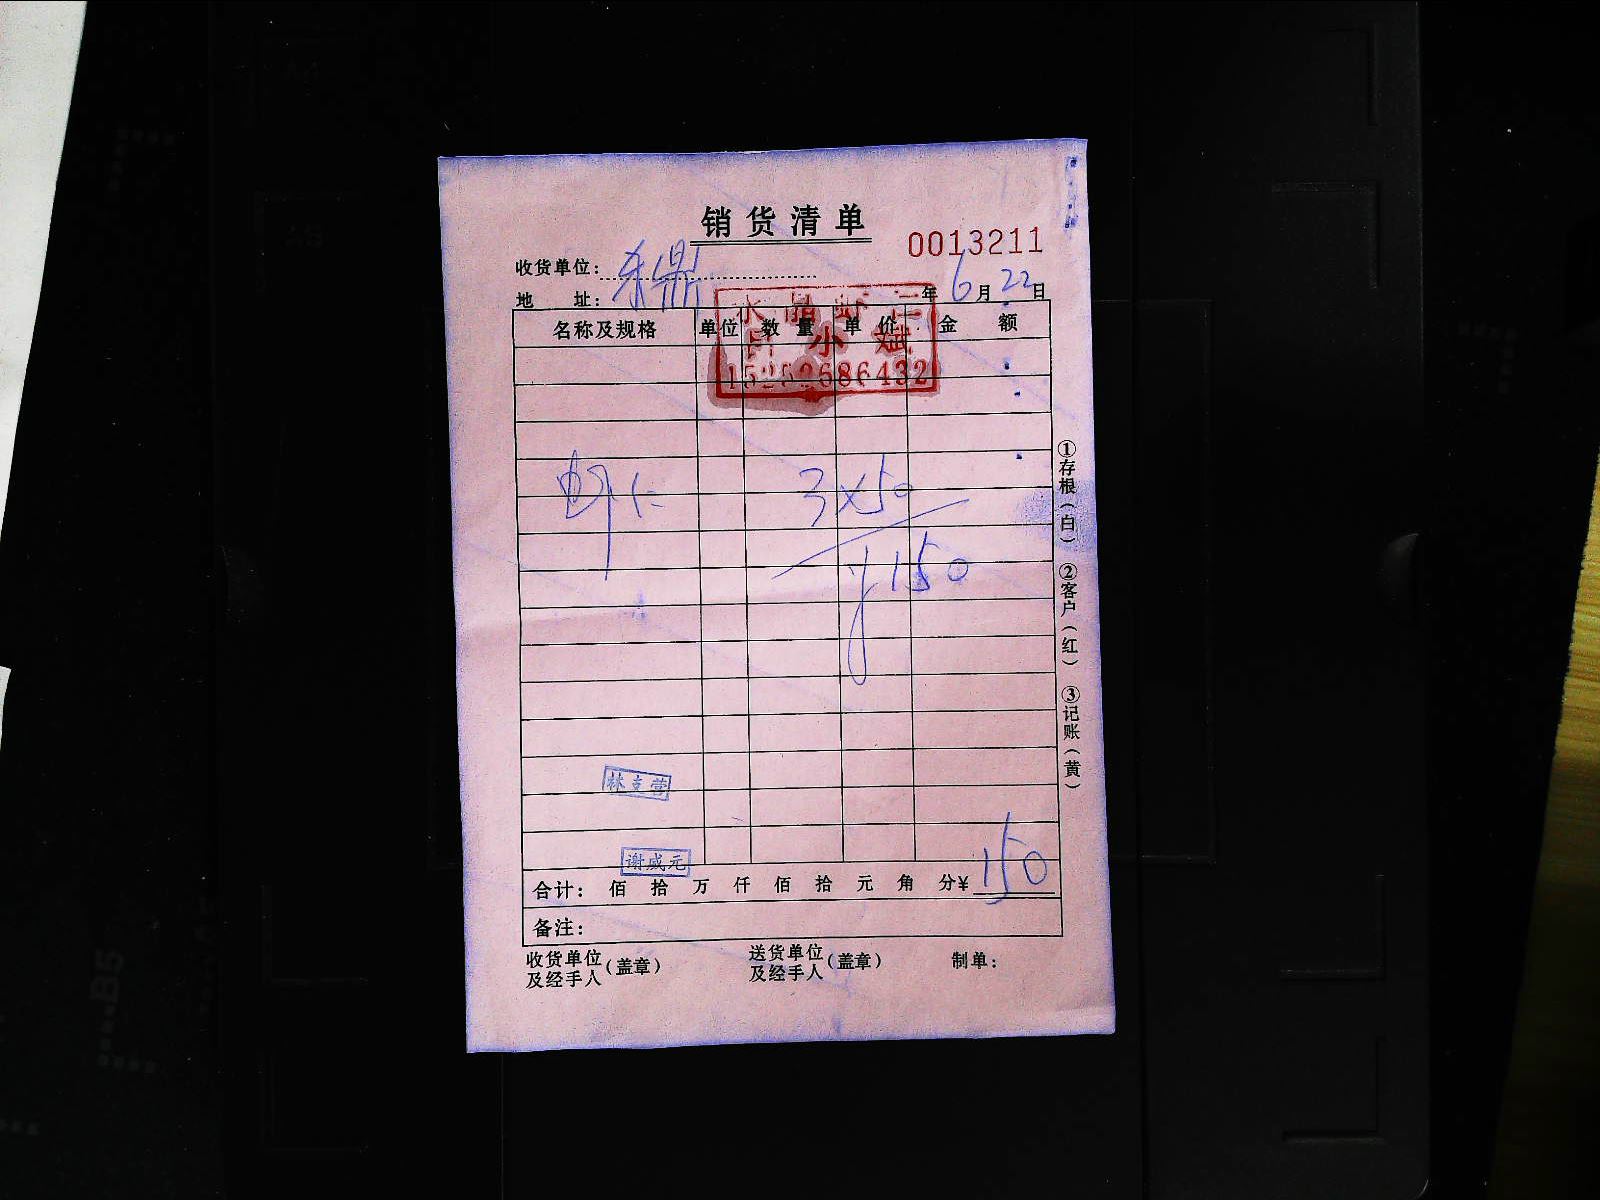 销货清单
0013211
收货单位：
地 址： 年 6 月 22 日
水晶虾仁
小斌
15252686432
名称及规格 单位 数量 单价 金额
虾仁 3×50
¥150
林支营
谢成元
合计： 佰 拾 万 仟 佰 拾 元 角 分¥ 150
备注：
收货单位及经手人（盖章） 送货单位及经手人（盖章） 制单：
①存根（白） ②客户（红） ③记账（黄）